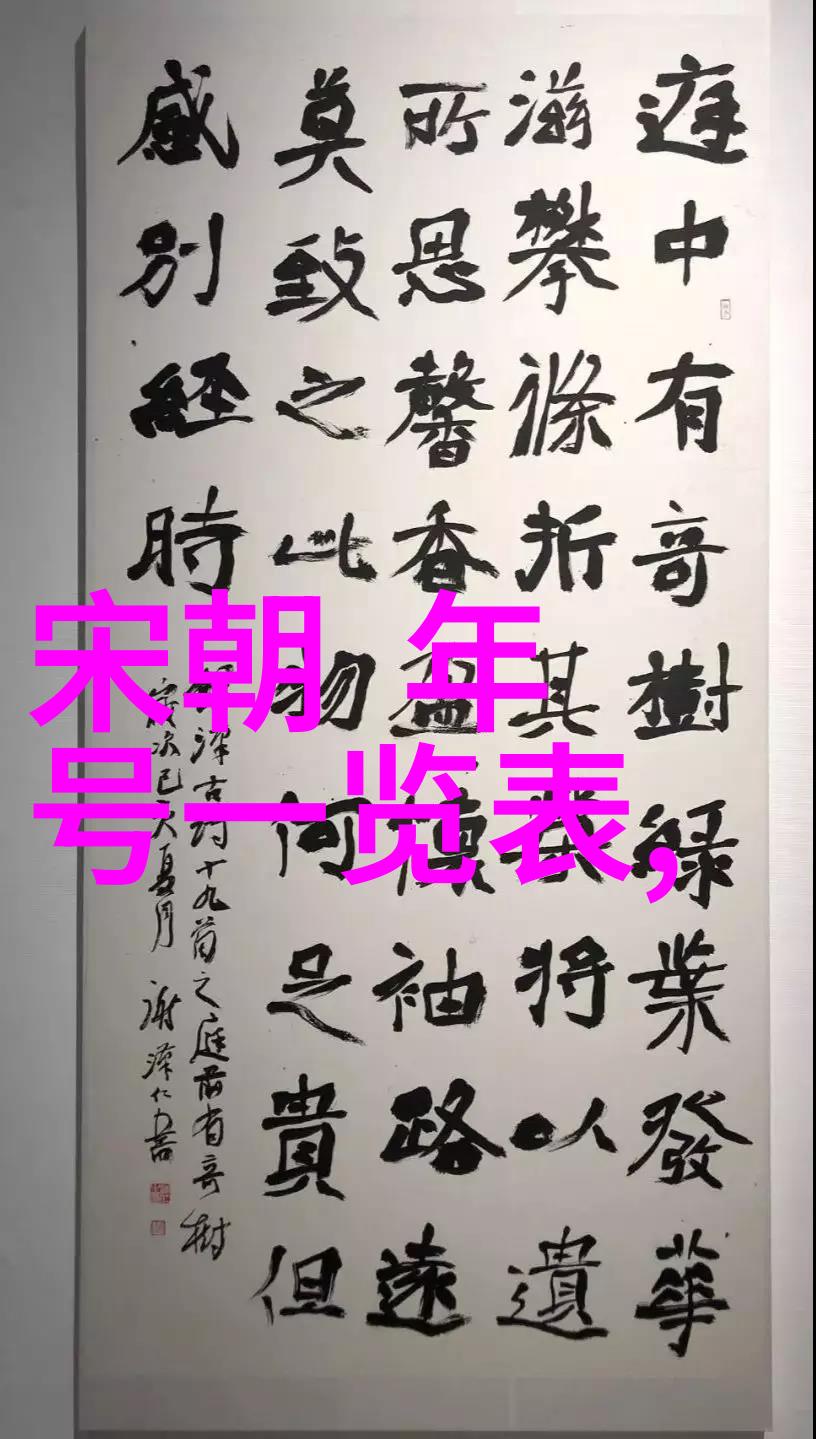 庭中有奇樹綠葉發華
滋攀條折其榮將以遺
所思馨香盈懷袖路遠
莫致之此物何足貴但
感別經時
古詩十九首之庭前有奇樹
歲次己亥夏月 謝澤仁書
宋朝 年
号一览表,